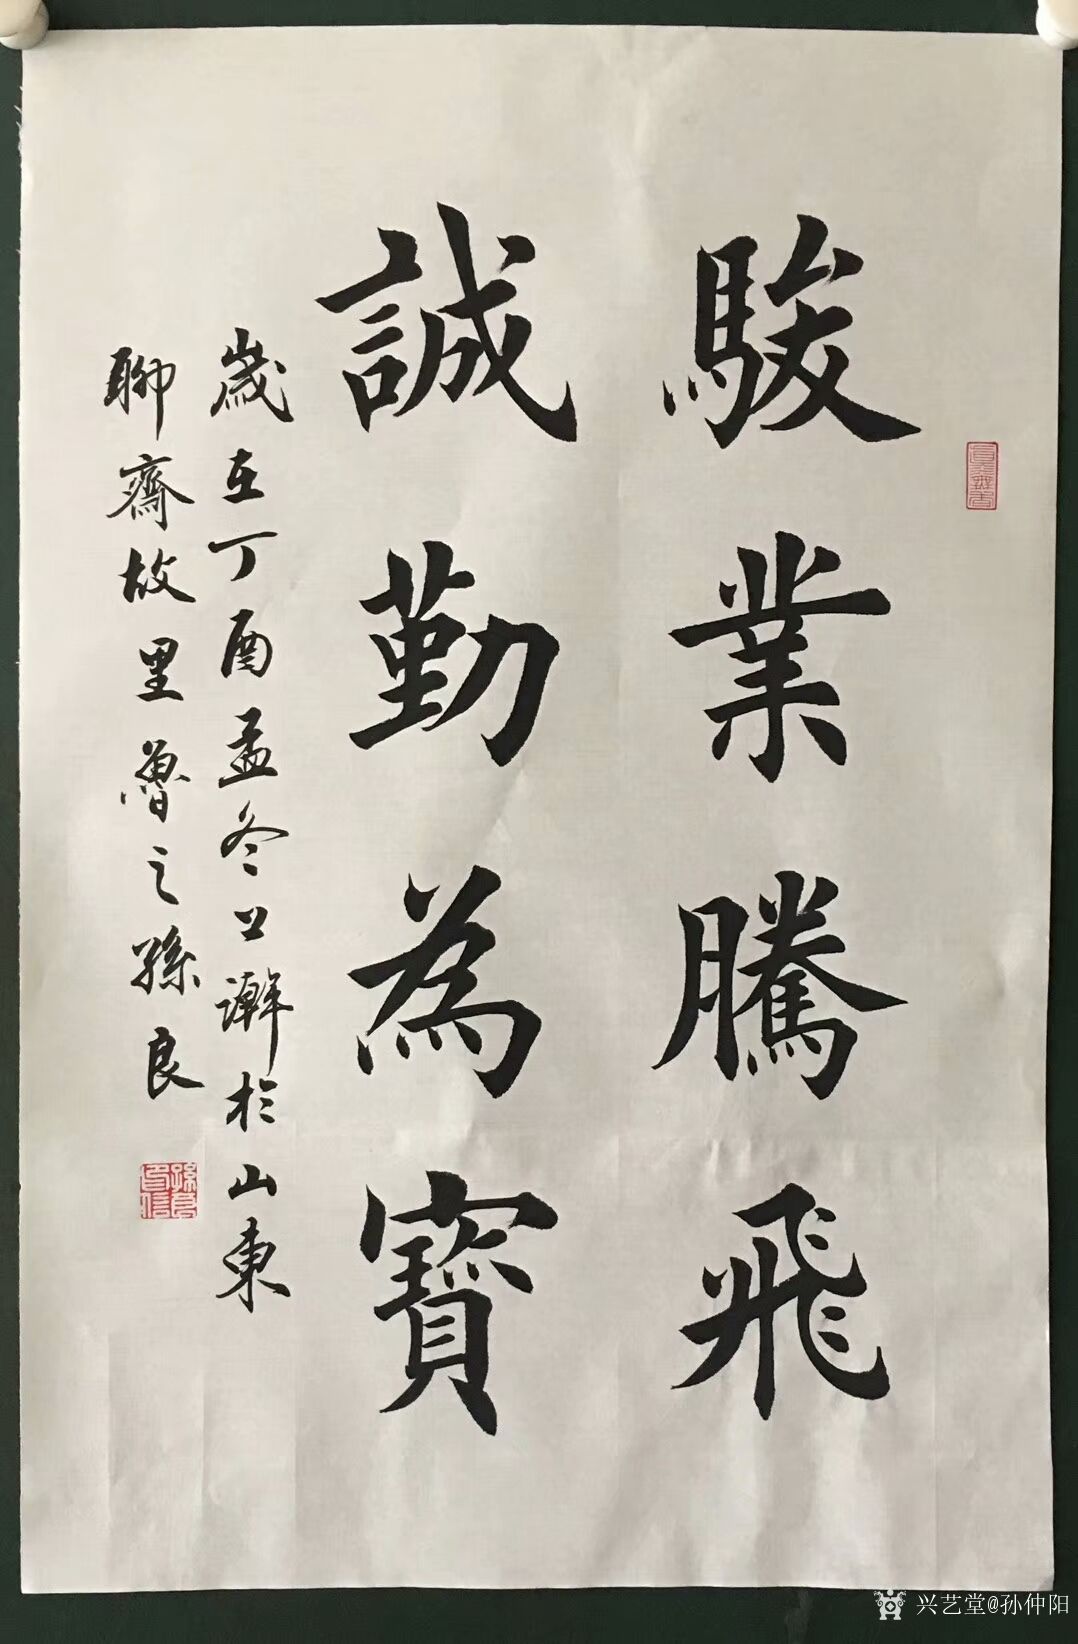 駿業騰飛
誠勤為寶
歲在丁酉孟冬上澣於山東
聊齋故里魯之孫良
孫良印信
兴艺堂@孙仲阳